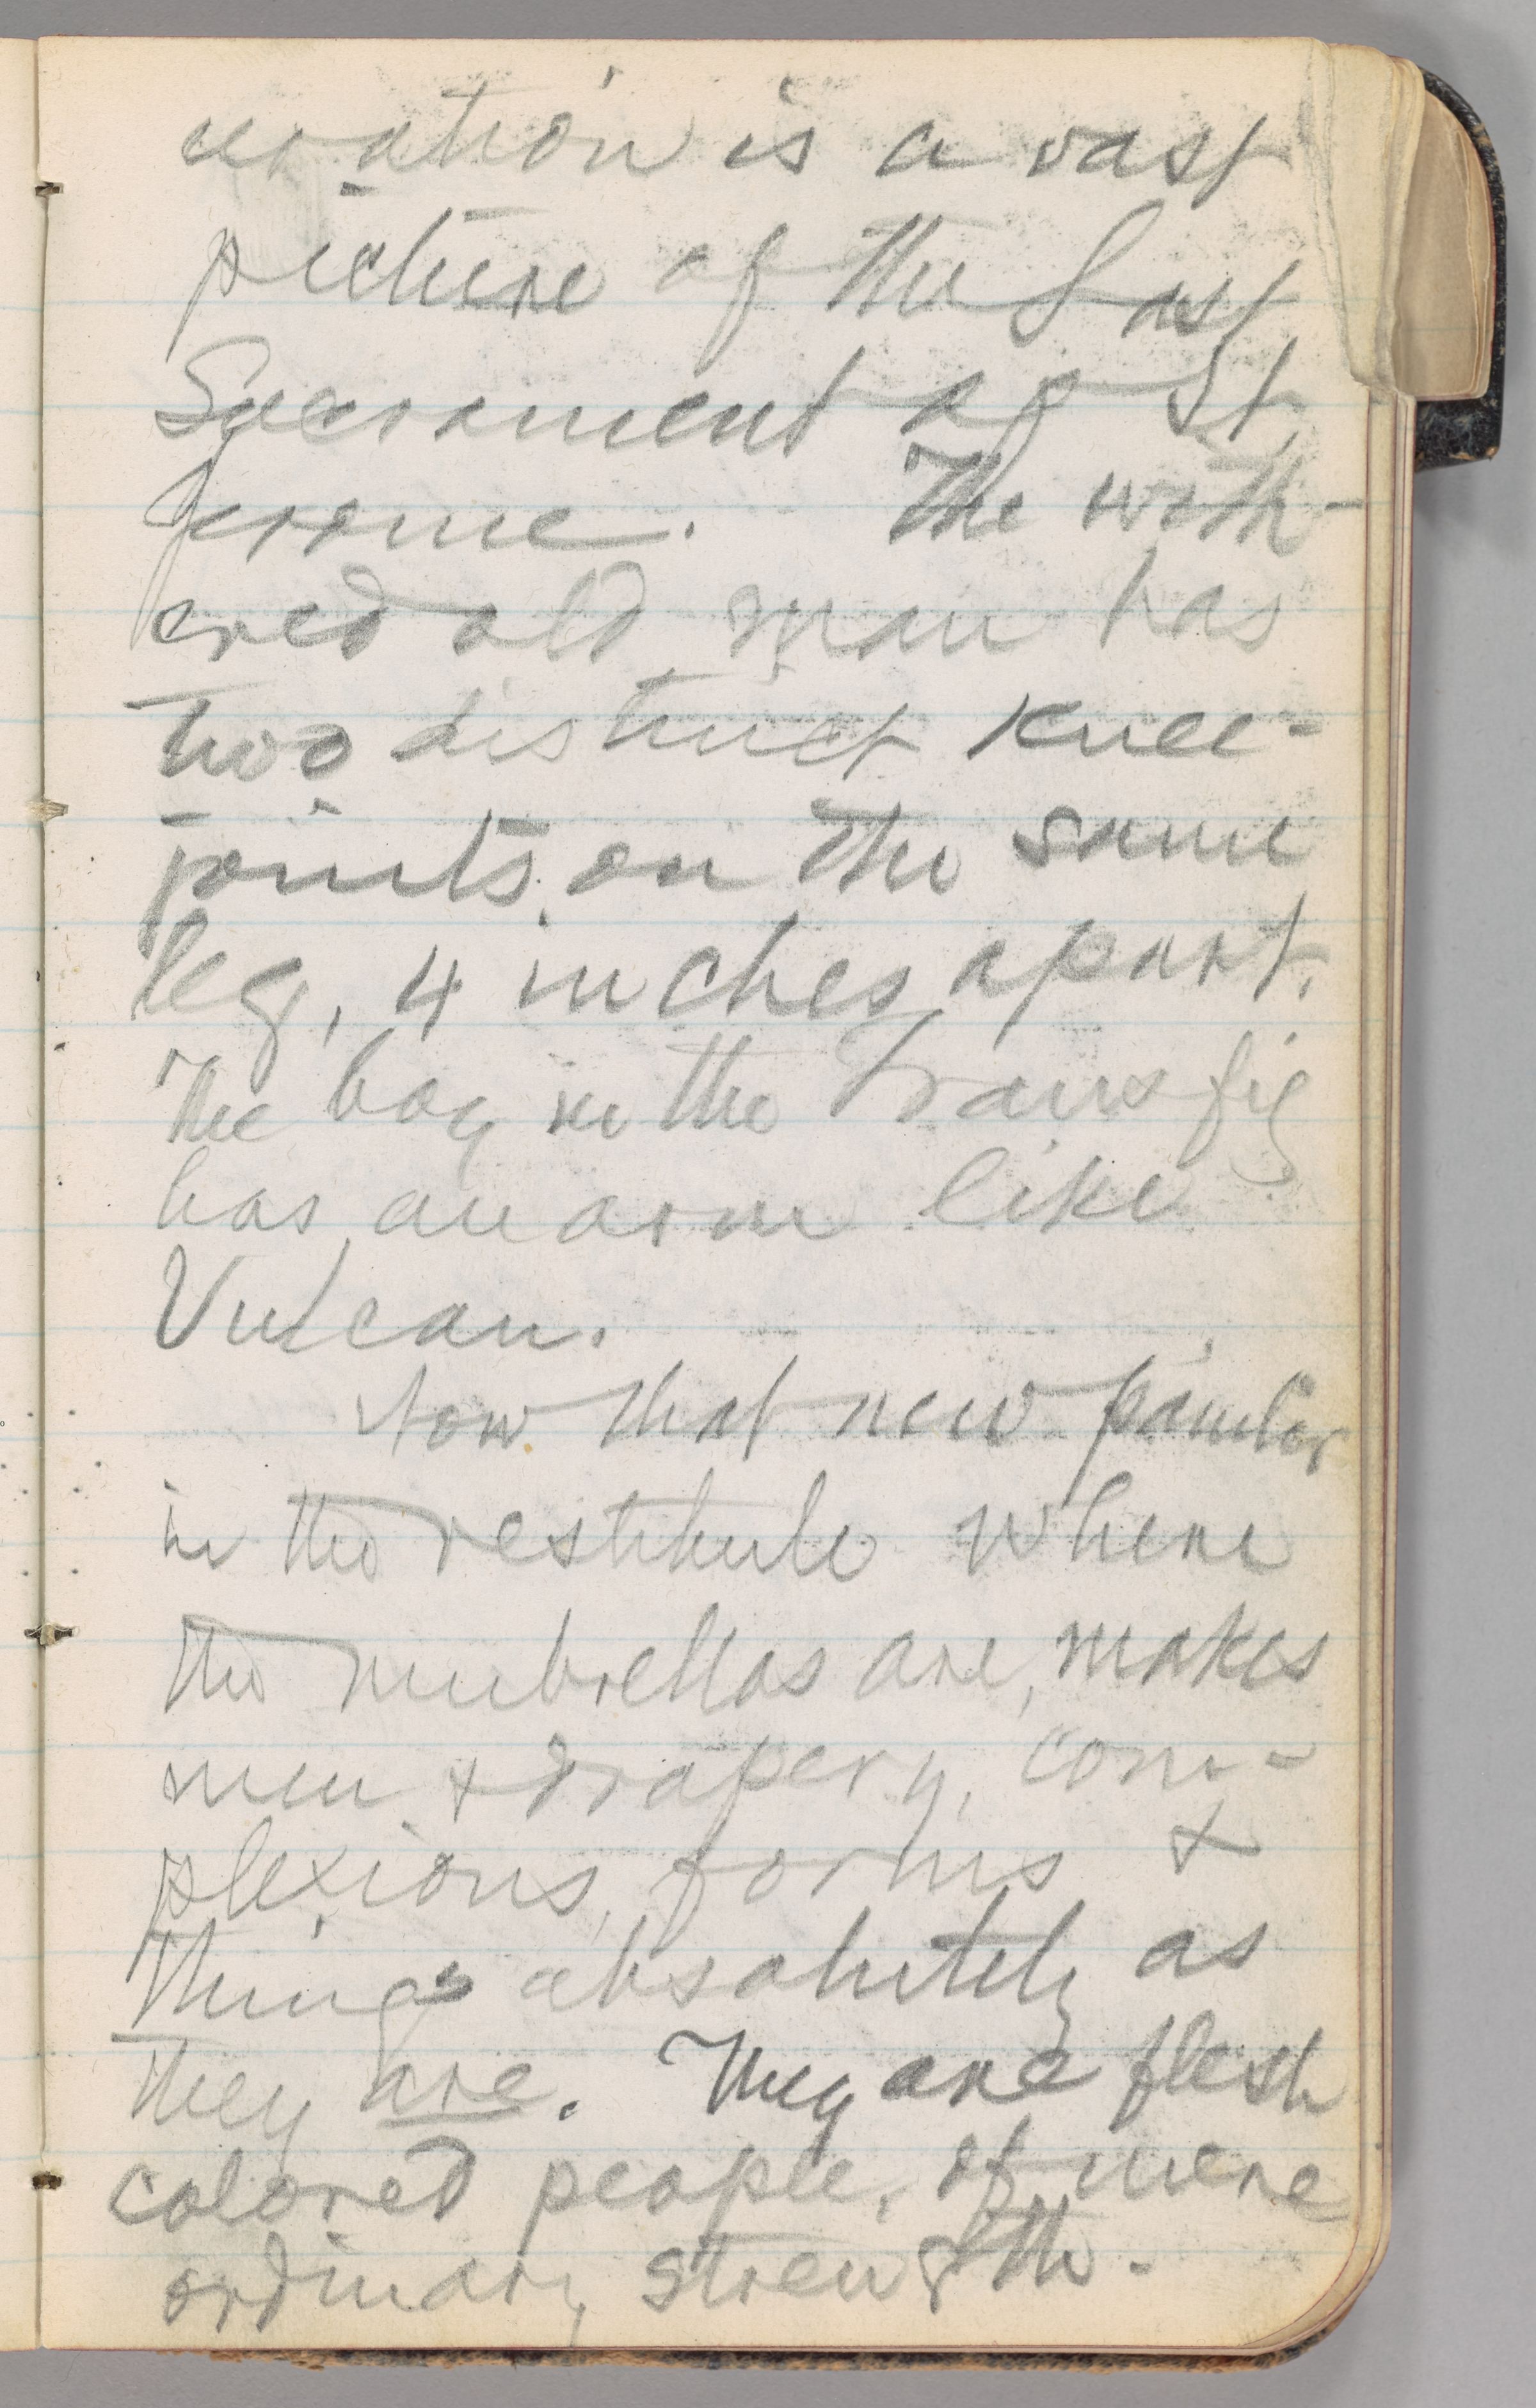 uration is a vast
picture of the Last
Sacrament of St.
Jerome. The with-
ered old man has
two distinct knee-
joints on the same
leg, 4 inches apart.
The boy in the Transfig
has an arm like
Vulcan.
Now that new painter
in the vestibule where
the umbrellas are, makes
men & drapery, com-
plexions, forms &
things absolutely as
they are. They are flesh
colored people, of mere
ordinary strength.